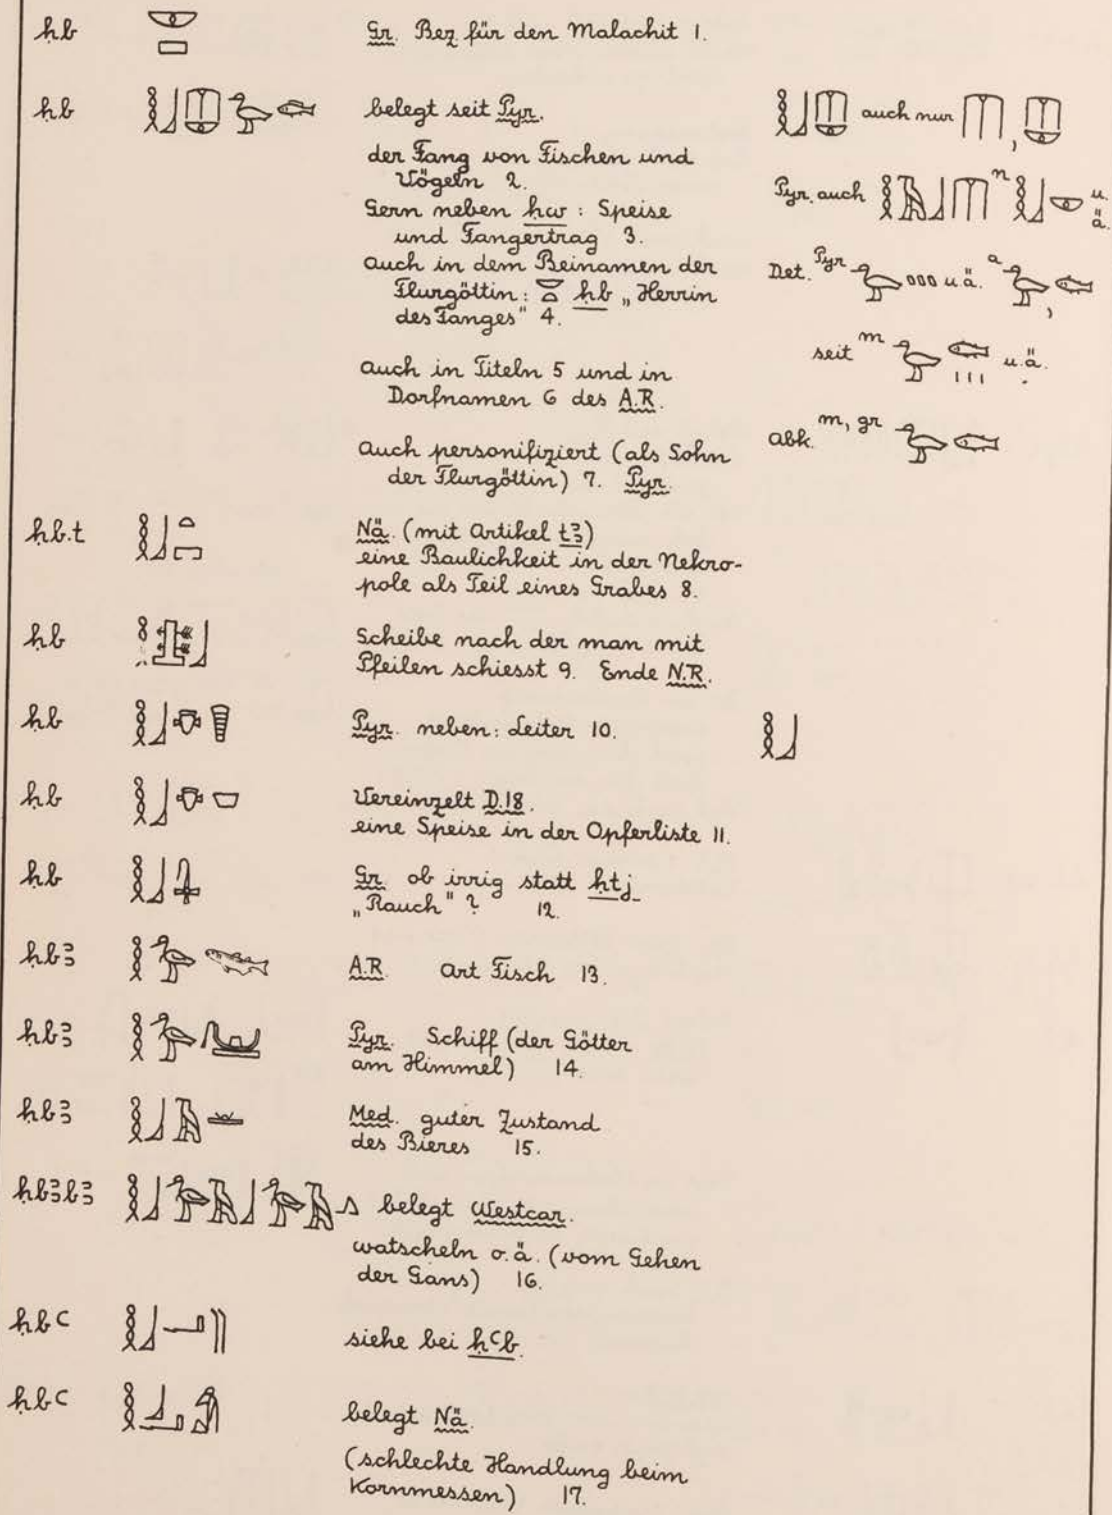 ḥb Gr. Bez für den Malachit 1.
ḥb belegt seit Pyr. auch nur ,
der Fang von Fischen und
Vögeln 2.
Pyr. auch n u. ä.
Gern neben ḥw : Speise
und Fangertrag 3.
auch in dem Beinamen der
Flurgöttin: ḥb „Herrin
des Fanges" 4.
Det. Pyr u.ä. a ,
seit m u.ä.
auch in Titeln 5 und in
Dorfnamen 6 des A.R.
Abk. m, gr
auch personifiziert (als Sohn
der Flurgöttin) 7. Pyr.
ḥb.t Nä. (mit Artikel tꜣ)
eine Baulichkeit in der Nekro-
pole als Teil eines Grabes 8.
ḥb Scheibe nach der man mit
Pfeilen schiesst 9. Ende N.R.
ḥb Pyr. neben: Leiter 10.
ḥb Vereinzelt D.18.
eine Speise in der Opferliste 11.
ḥb Gr. ob irrig statt ḥtj
„Rauch" ? 12.
ḥbꜣ A.R. Art Fisch 13.
ḥbꜣ Pyr. Schiff (der Götter
am Himmel) 14.
ḥbꜣ Med. guter Zustand
des Bieres 15.
ḥbꜣbꜣ belegt Westcar.
watscheln o.ä. (vom Gehen
der Gans) 16.
ḥbꜥ siehe bei ḥꜥb.
ḥbꜥ belegt Nä.
(schlechte Handlung beim
Kornmessen) 17.